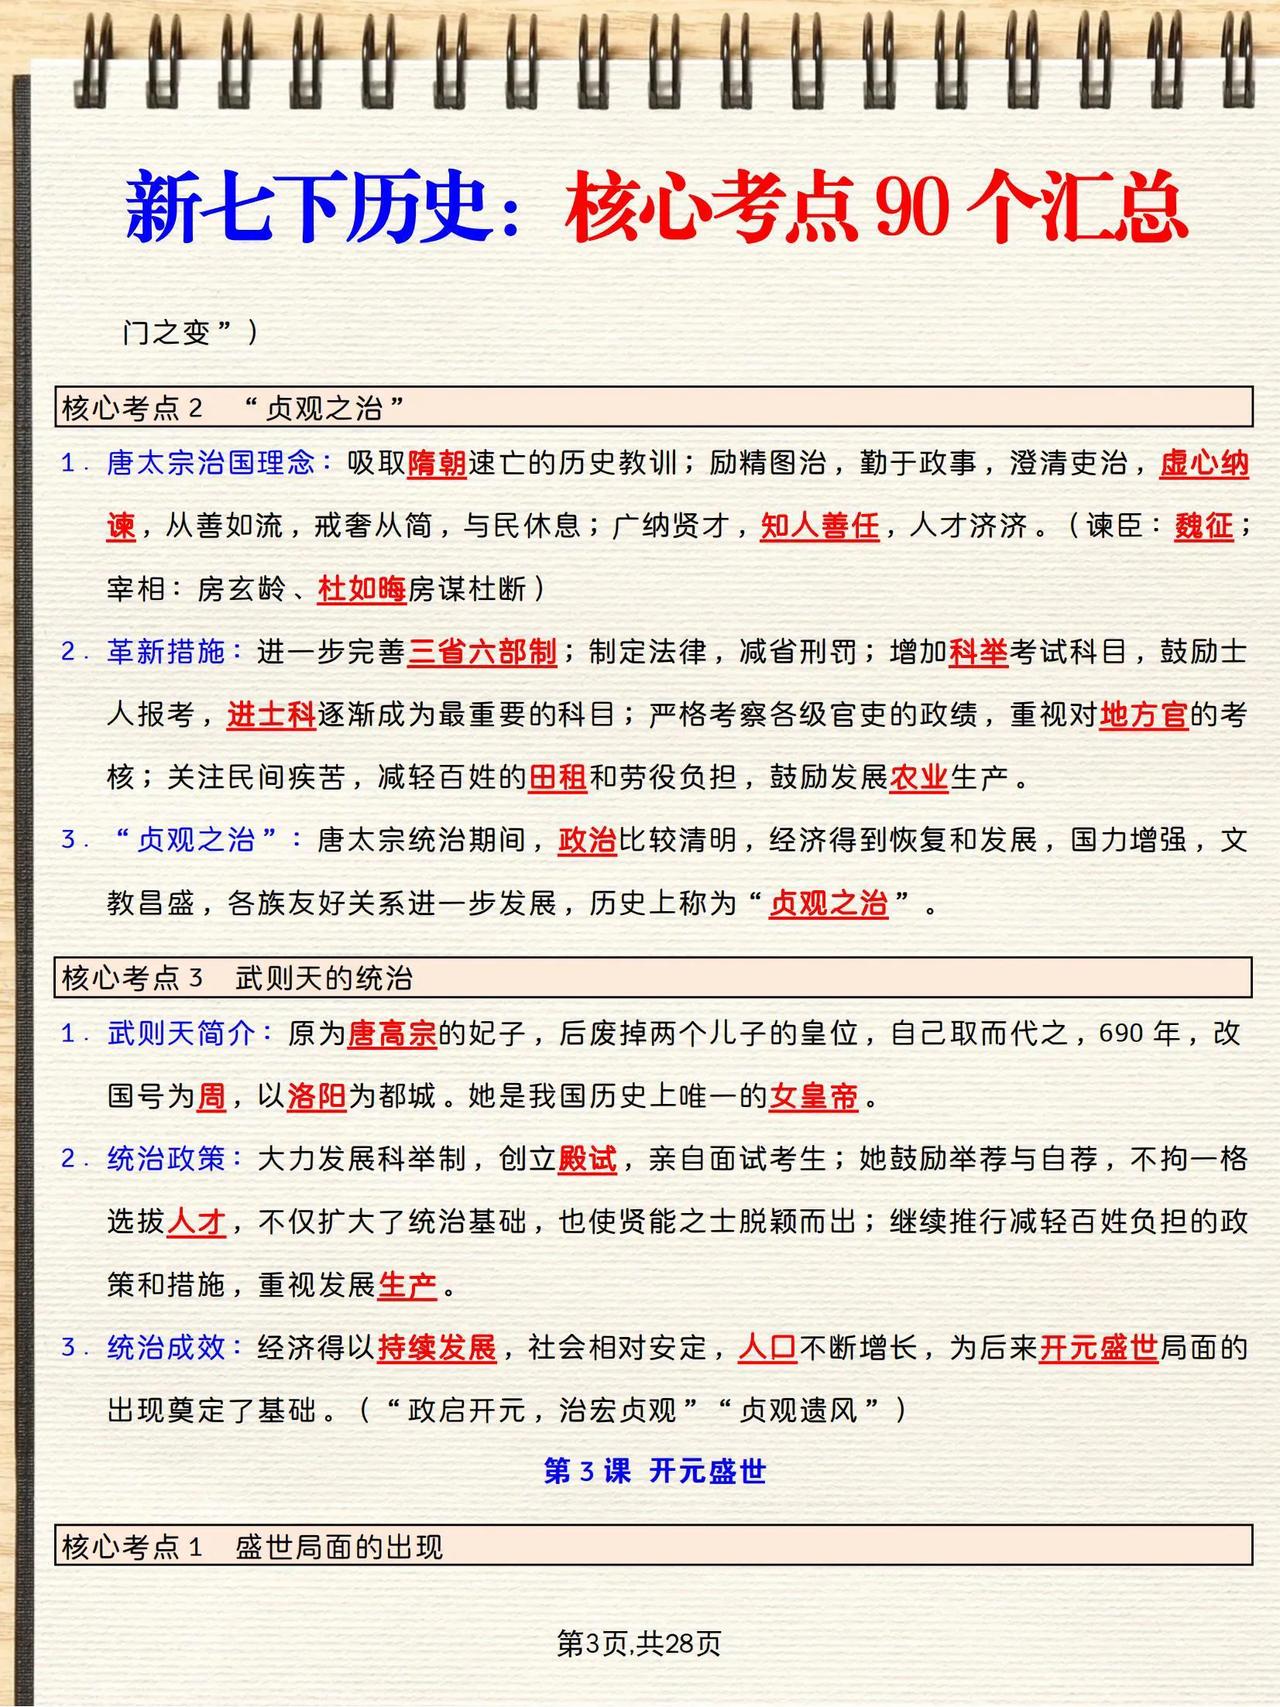 新七下历史：核心考点90个汇总
门之变”）
核心考点2 “贞观之治”
1．唐太宗治国理念：吸取隋朝速亡的历史教训；励精图治，勤于政事，澄清吏治，虚心纳
谏，从善如流，戒奢从简，与民休息；广纳贤才，知人善任，人才济济。（谏臣：魏征；
宰相：房玄龄、杜如晦房谋杜断）
2．革新措施：进一步完善三省六部制；制定法律，减省刑罚；增加科举考试科目，鼓励士
人报考，进士科逐渐成为最重要的科目；严格考察各级官吏的政绩，重视对地方官的考
核；关注民间疾苦，减轻百姓的田租和劳役负担，鼓励发展农业生产。
3．“贞观之治”：唐太宗统治期间，政治比较清明，经济得到恢复和发展，国力增强，文
教昌盛，各族友好关系进一步发展，历史上称为“贞观之治”。
核心考点3 武则天的统治
1．武则天简介：原为唐高宗的妃子，后废掉两个儿子的皇位，自己取而代之，690年，改
国号为周，以洛阳为都城。她是我国历史上唯一的女皇帝。
2．统治政策：大力发展科举制，创立殿试，亲自面试考生；她鼓励举荐与自荐，不拘一格
选拔人才，不仅扩大了统治基础，也使贤能之士脱颖而出；继续推行减轻百姓负担的政
策和措施，重视发展生产。
3．统治成效：经济得以持续发展，社会相对安定，人口不断增长，为后来开元盛世局面的
出现奠定了基础。（“政启开元，治宏贞观”“贞观遗风”）
第3课 开元盛世
核心考点1 盛世局面的出现
第3页,共28页